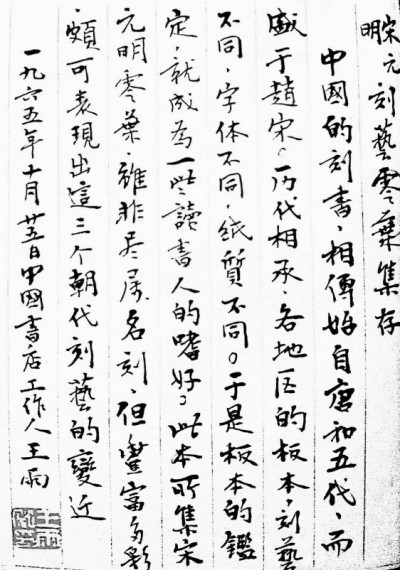 宋元明刻藝零葉集存
中國的刻書，相傳始自唐和五代，而
盛于趙宋。历代相承，各地区的板本，刻藝
不同，字体不同，纸質不同。于是板本的鑑
定，就成為一些讀書人的嗜好。此本所集宋
元明零葉 雖非尽属名刻，但豐富多彩
，頗可表現出這三个朝代刻藝的變迁
一九六五年十月廿五日中國書店工作人王雨